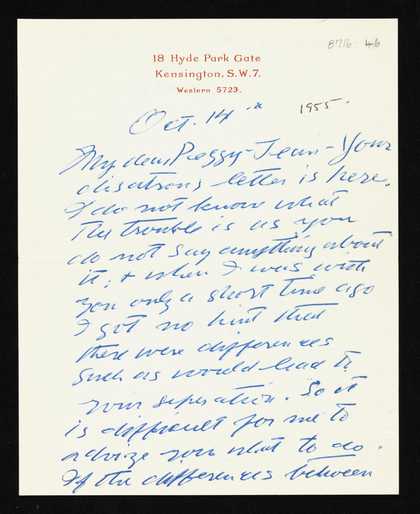 8716.46
18 Hyde Park Gate
Kensington. S.W.7.
Western 5723.
Oct. 14th 1955.
My dear Peggy-Jean - Your
disatrous letter is here.
I do not know what
the trouble is as you
do not say anything about
it, & when I was with
you only a short time ago
I got no hint that
there were differences
such as would lead to
your seperation. So it
is difficult for me to
advize you what to do.
If the differences between